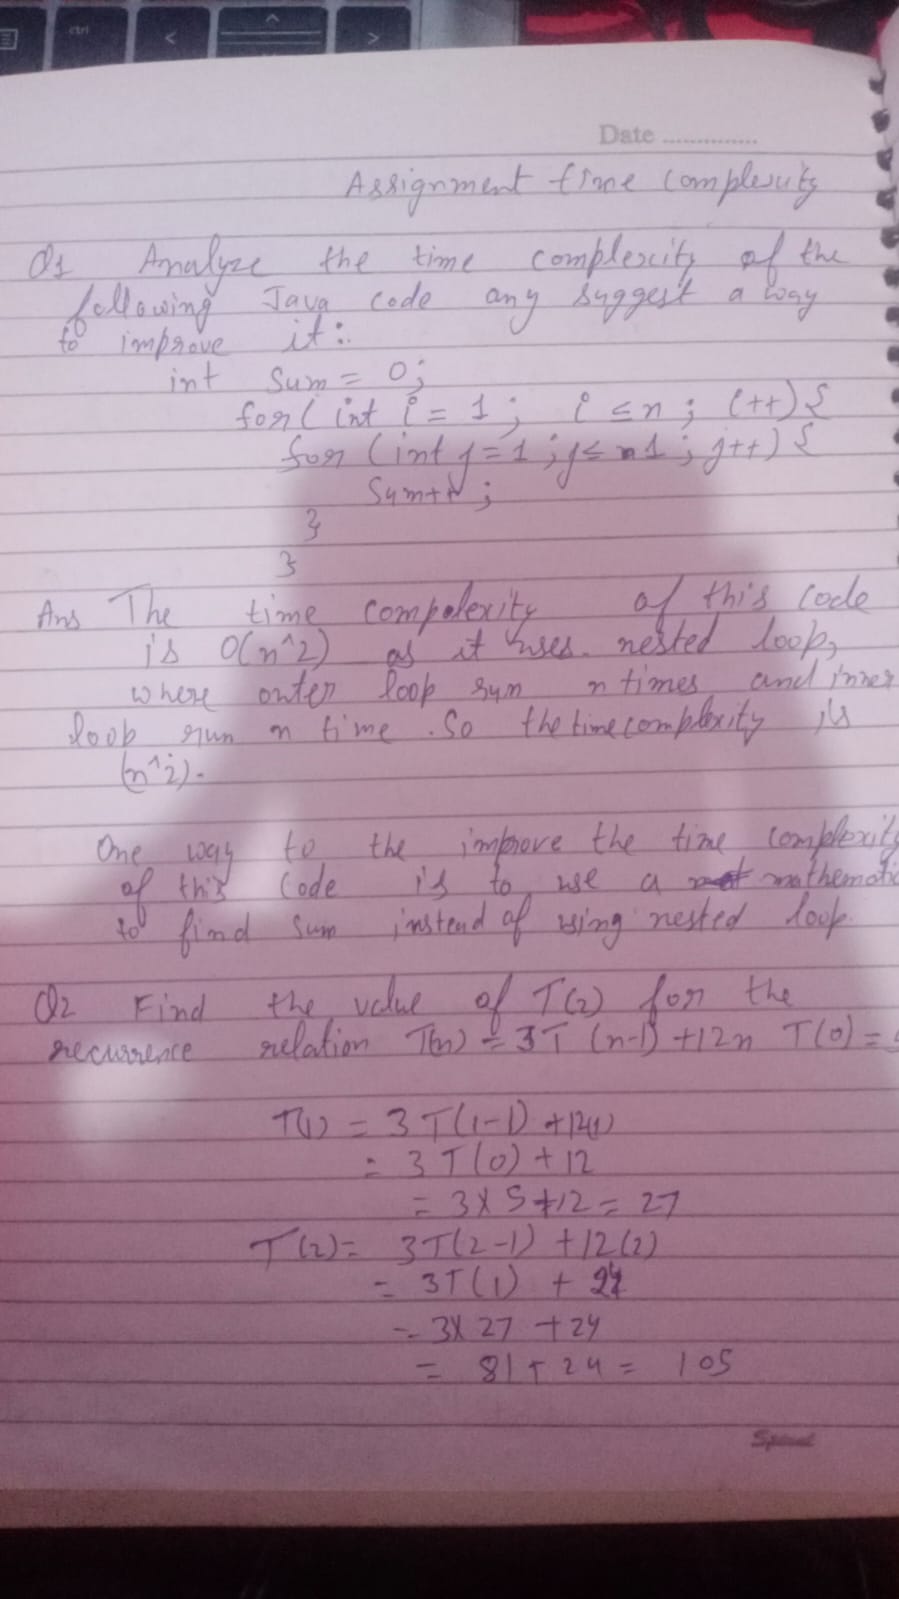 ctrl
Date ..............
Assignment time complexity
Q1 Analyze the time complexity of the
following Java code any suggest a way
to improve it :
int Sum = 0;
for ( int i = 1 ; i ≤ n ; i++) {
for ( int j = 1 ; j ≤ n ; j++) {
Sum++ ;
}
}
Ans The time compolexity of this code
is O(n^2) as it uses nested loop,
where outer loop run n times and inner
loop run n time . So the time complexity is
(n^2).
One way to the improve the time complexity
of this code is to use a mathematic
to find sum instead of using nested loop.
Q2 Find the value of T(2) for the
recurrence relation T(n) = 3T (n-1) +12n T(0) = 5
T(1) = 3T(1-1) +12(1)
= 3T(0) + 12
= 3X5+12 = 27
T(2)= 3T(2-1) +12(2)
= 3T(1) + 24
= 3X 27 +24
= 81 + 24 = 105